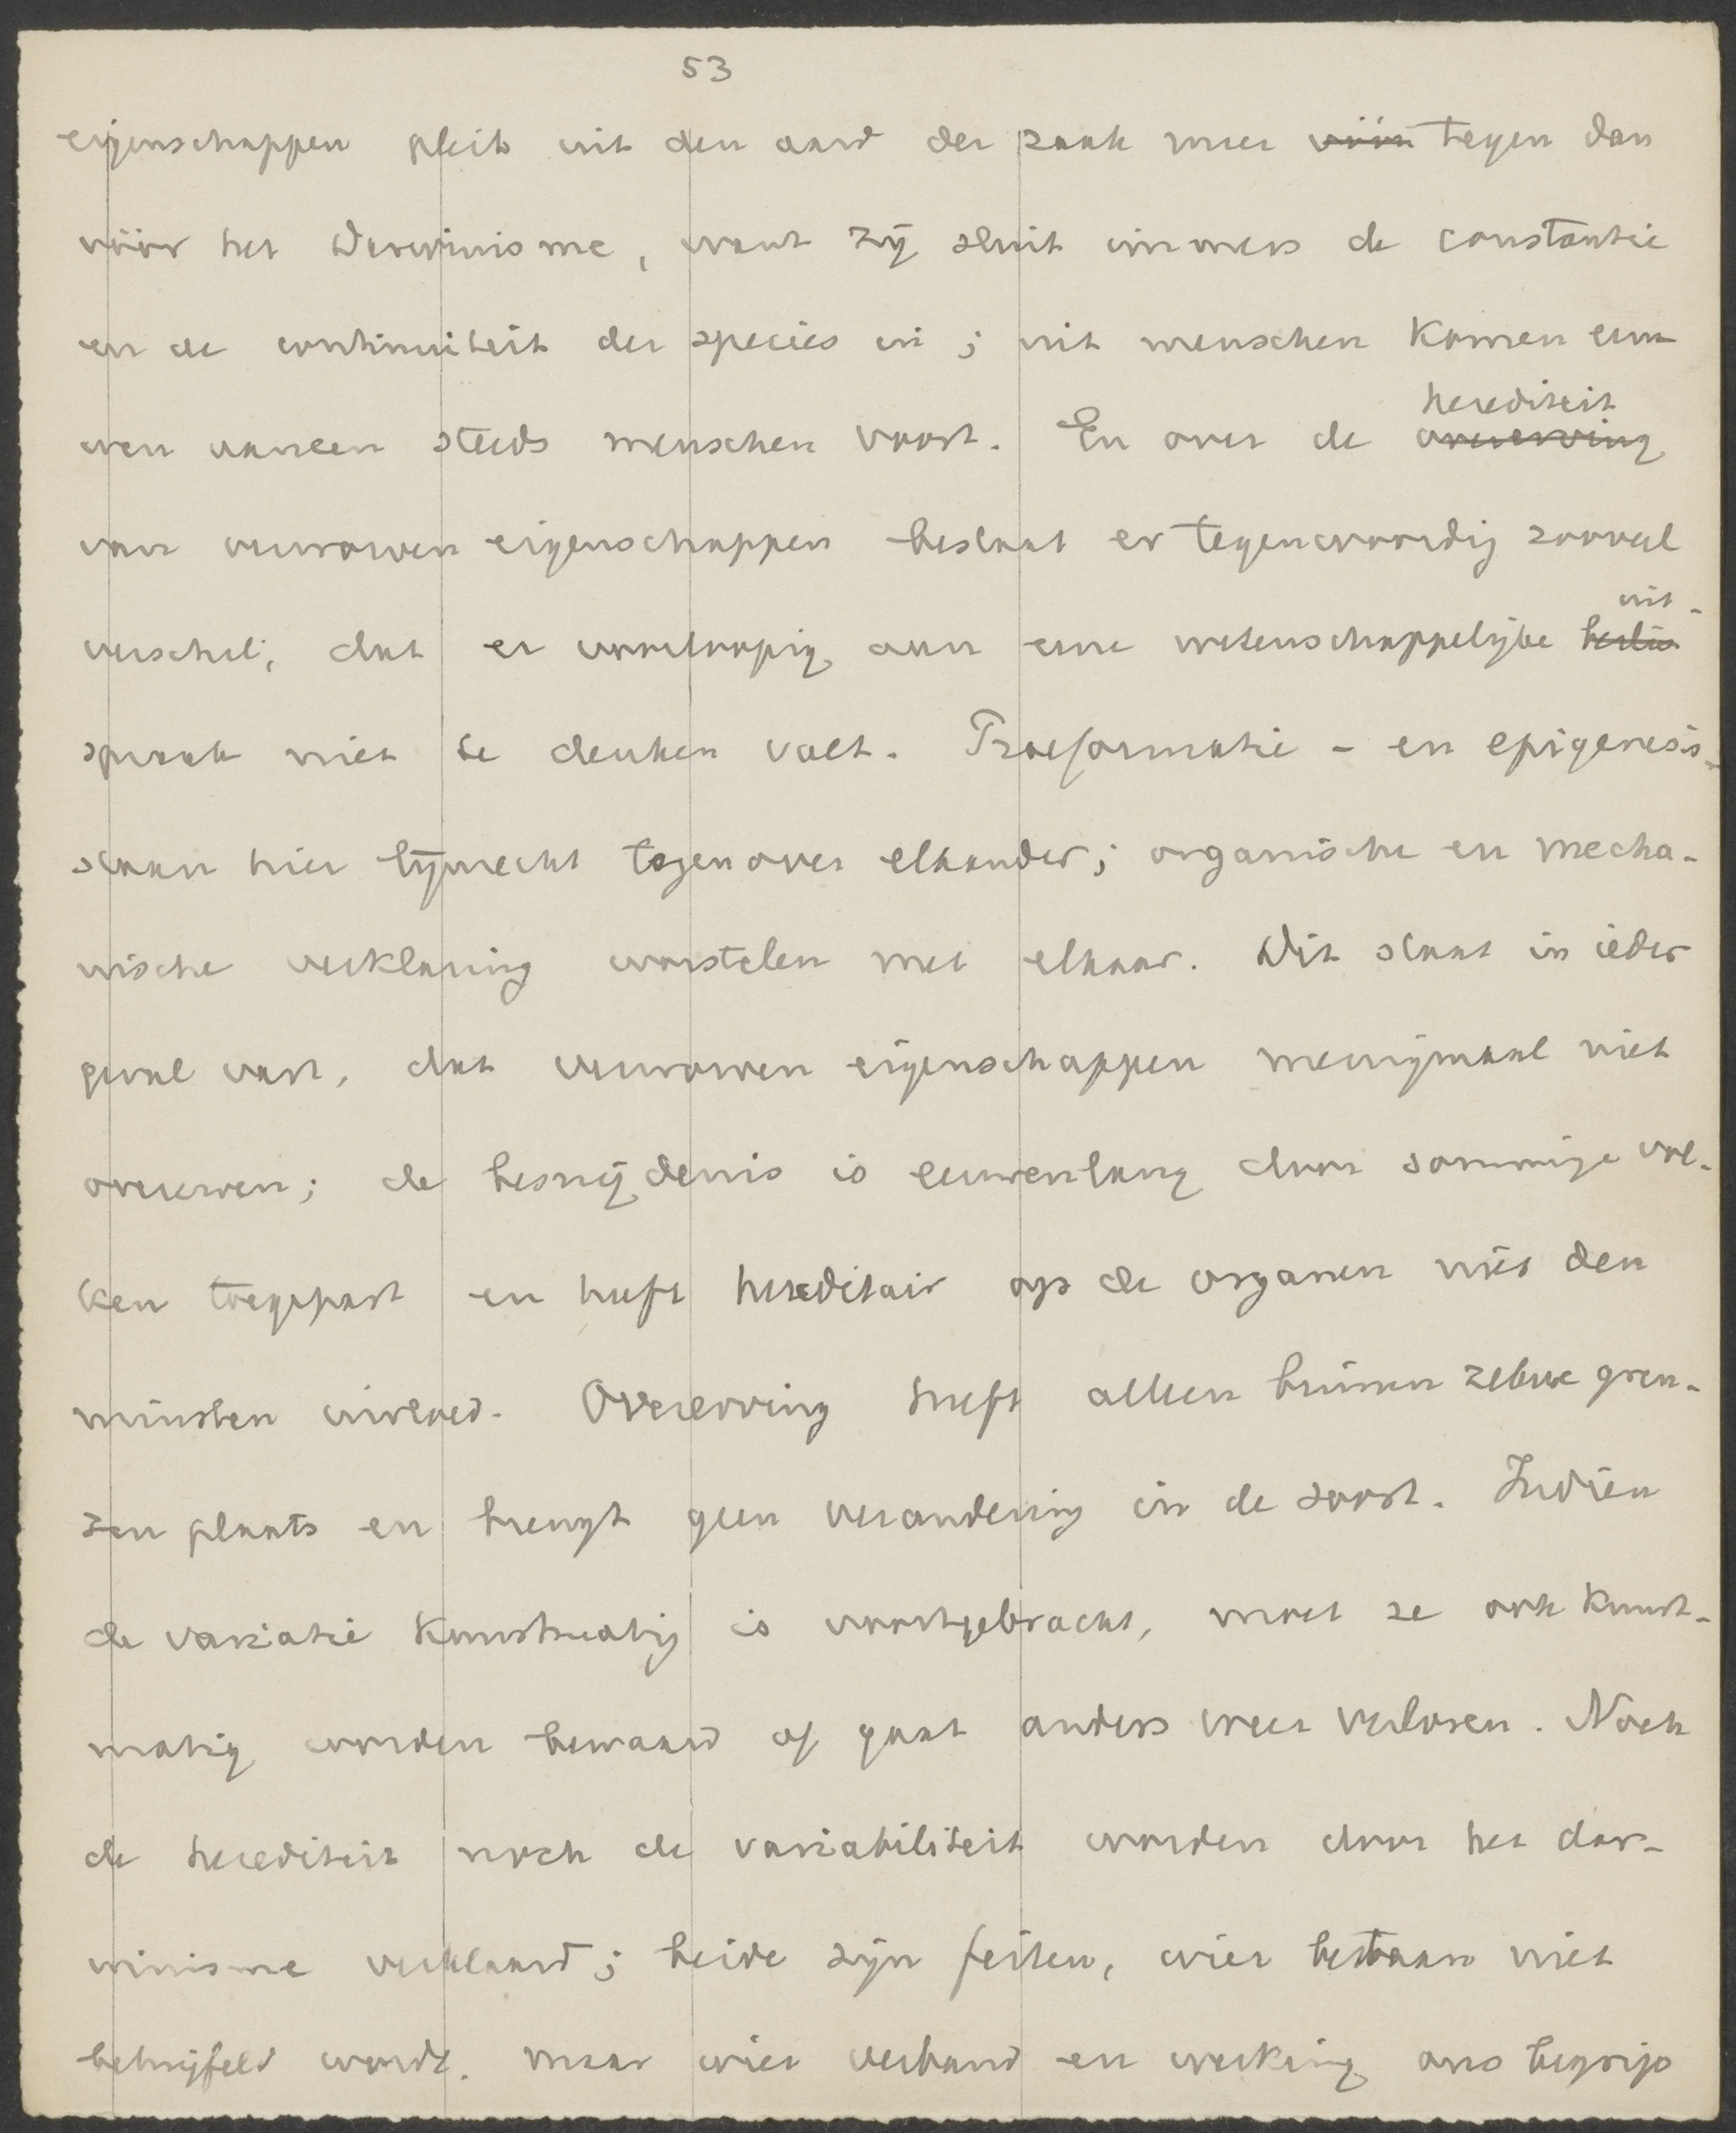 53
eigenschappen pleit uit den aard der zaak meer vóór tegen dan
vóór het Darwinisme, want zij sluit immers de constantie
en de continuiteit der species in; uit menschen komen eeu-
wen aaneen steeds menschen voort. En over de overerving herediteit
van verworven eigenschappen bestaat er tegenwoordig zooveel
verschil, dat er voorloopig aan eene wetenschappelijke beslis uit-
spraak niet te denken valt. Praeformatie - en epigenesis-
staan hier lijnrecht tegenover elkander; organische en mecha-
nische verklaring worstelen met elkaar. Dit staat in ieder
geval vast, dat verworven eigenschappen menigmaal niet
overerven; de besnijdenis is eeuwenlang door sommige vol-
ken toegepast en heeft hereditair op de organen niet den
minsten invloed. Overerving heeft alleen binnen zekere gren-
zen plaats en brengt geen verandering in de soort. Indien
de variatie kunstmatig is voortgebracht, moet ze ook kunst-
matig worden bewaard of gaat anders weer verloren. Noch
de herediteit noch de variabiliteit worden door het dar-
winisme verklaard; beide zijn feiten, wier bestaan niet
betwijfeld wordt. maar wier verband en werking ons begrijp